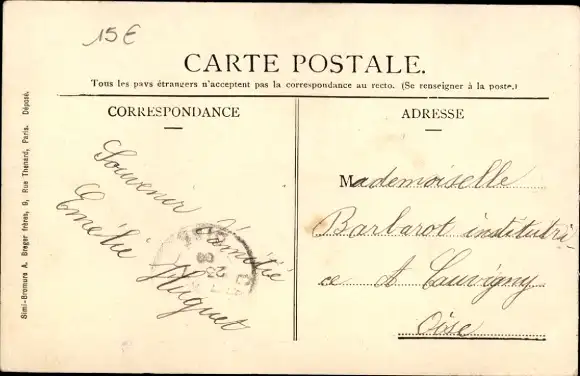 15€
CARTE POSTALE.
Tous les pays étrangers n'acceptent pas la correspondance au recto. (Se renseigner à la poste.)
CORRESPONDANCE
ADRESSE
Souvenir d'amitié
Emélie Huguet
Mademoiselle
Barbarot institutri-
ce A Cauvigny
Oise
Simi-Bromure A. Breger frères, 9, Rue Thenard, Paris. Déposé.